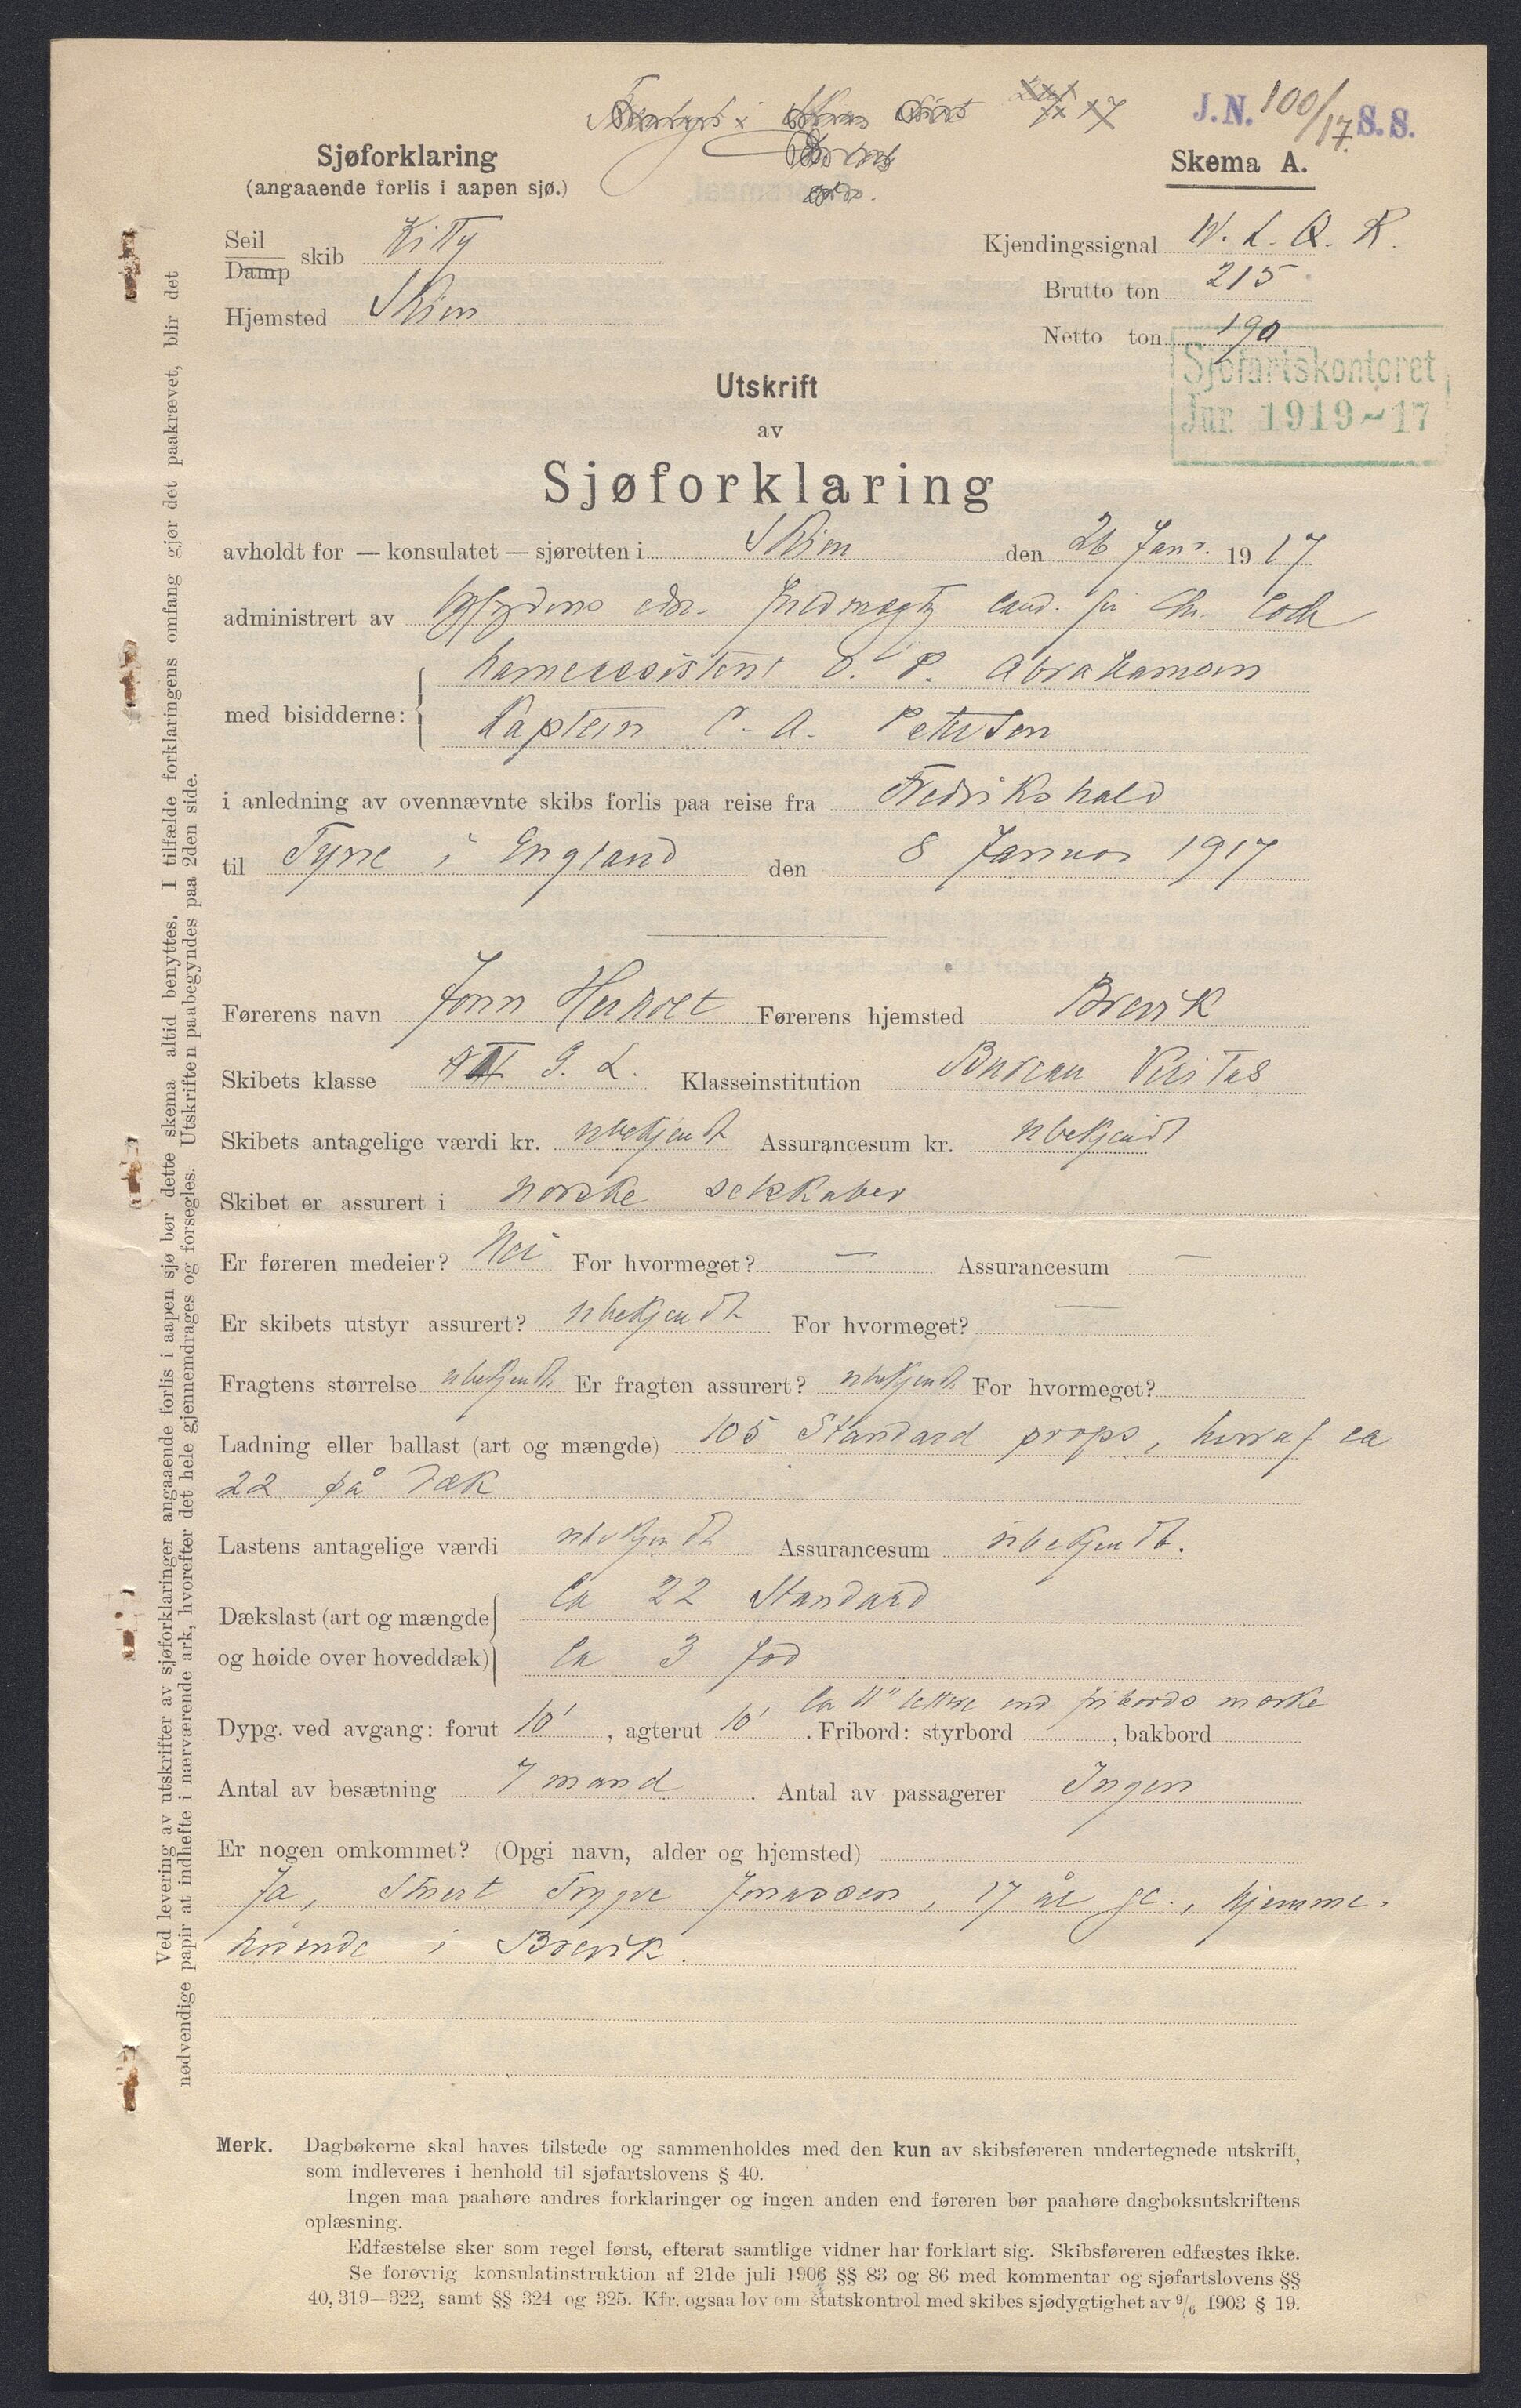 J.N. 100/17 S.S.
Sjøforklaring
(angaaende forlis i aapen sjø.)
Skema A.
Seil
Damp skib Kitty
Hjemsted Skien
Kjendingssignal
Brutto ton 215
Netto ton 190
Sjøfartskontoret
Jnr. 1919-17
Utskrift
av
Sjøforklaring
avholdt for — konsulatet — sjøretten i Skien den 26 Janr. 1917
administrert av edsv. fuldmægtig cand. jur. Chr.
med bisidderne: havneassistent O. P. Abrahamsen
Kaptein C. A. Petersen
i anledning av ovennævnte skibs forlis paa reise fra Fredrikshald
til Tyne i England den 8 Januar 1917
Førerens navn John Førerens hjemsted Brevik
Skibets klasse Klasseinstitution Bureau Veritas
Skibets antagelige værdi kr. ubekjendt Assurancesum kr. ubekjendt
Skibet er assurert i norske selskaber
Er føreren medeier? Nei For hvormeget? — Assurancesum —
Er skibets utstyr assurert? ubekjendt For hvormeget? —
Fragtens størrelse ubekjendt Er fragten assurert? ubekjendt For hvormeget?
Ladning eller ballast (art og mængde) 105 Standard props, herraf ca
22 på dæk
Lastens antagelige værdi ubekjendt Assurancesum ubekjendt.
Dækslast (art og mængde Ca 22 Standard
og høide over hoveddæk) Ca 3 fod
Ca 11" lettere end fribords mærke
Dypg. ved avgang: forut 10', agterut 10'. Fribord: styrbord , bakbord
Antal av besætning 7 mand. Antal av passagerer Ingen
Er nogen omkommet? (Opgi navn, alder og hjemsted)
Ja, Stuert Trygve Jonassen, 17 år gl., hjemme-
hørende i Brevik.
Merk. Dagbøkerne skal haves tilstede og sammenholdes med den kun av skibsføreren undertegnede utskrift,
som indleveres i henhold til sjøfartslovens § 40.
Ingen maa paahøre andres forklaringer og ingen anden end føreren bør paahøre dagboksutskriftens
oplæsning.
Edfæstelse sker som regel først, efterat samtlige vidner har forklart sig. Skibsføreren edfæstes ikke.
Se forøvrig konsulatinstruktion af 21de juli 1906 §§ 83 og 86 med kommentar og sjøfartslovens §§
40, 319—322, samt §§ 324 og 325. Kfr. ogsaa lov om statskontrol med skibes sjødygtighet av 9/6 1903 § 19.
Ved levering av utskrifter av sjøforklaringer angaaende forlis i aapen sjø bør dette skema altid benyttes. I tilfælde forklaringens omfang gjør det paakrævet, blir det
nødvendige papir at indhefte i nærværende ark, hvorefter det hele gjennemdrages og forsegles. Utskriften paabegyndes paa 2den side.